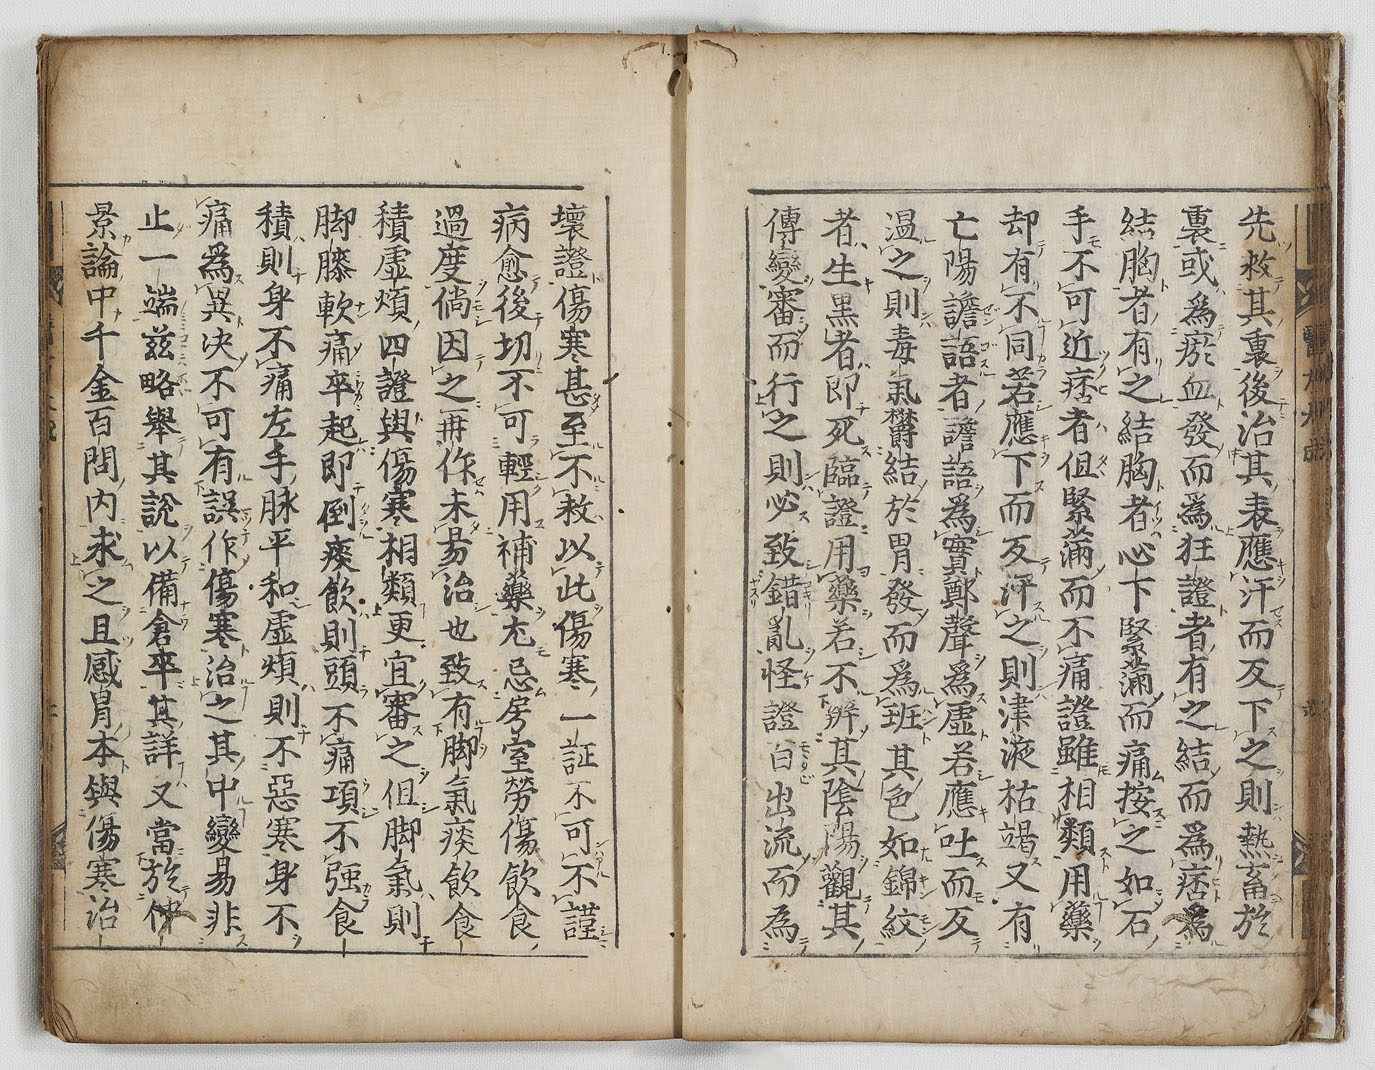 先救其裏後治其表應汗而反下之則熱畜於
裏或為瘀血發而為狂證者有之結而為痞為
結胸者有之結胸者心下緊滿而痛按之如石
手不可近痞者但緊滿而不痛證雖相類用藥
却有不同若應下而反汗之則津液枯竭又有
亡陽譫語者譫語為實鄭聲為虛若應吐而反
温之則毒氣欝結於胃發而為班其色如錦紋
者生黒者即死臨證用藥若不辨其陰陽觀其
傳變審而行之則必致錯亂怪證百出流而為
壞證傷寒甚至不救以此傷寒一証不可不謹
病愈後切不可輕用補藥尤忌房室勞傷飲食
過度倘因之再作未易治也致有脚氣痰飲食
積虛煩四證與傷寒相類更宜審之但脚氣則
脚膝軟痛卒起即倒痰飲則頭不痛項不强食
積則身不痛左手脉平和虛煩則不惡寒身不
痛為異决不可有誤作傷寒治之其中變易非
止一端兹略舉其說以備倉卒其詳又當於仲
景論中千金百問内求之且感冒本與傷寒治